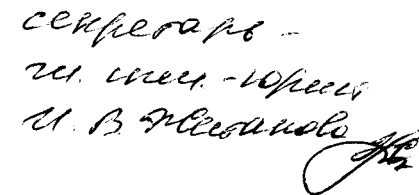 секретарь -
гл. спец. - юрист
И. В. Жбанова